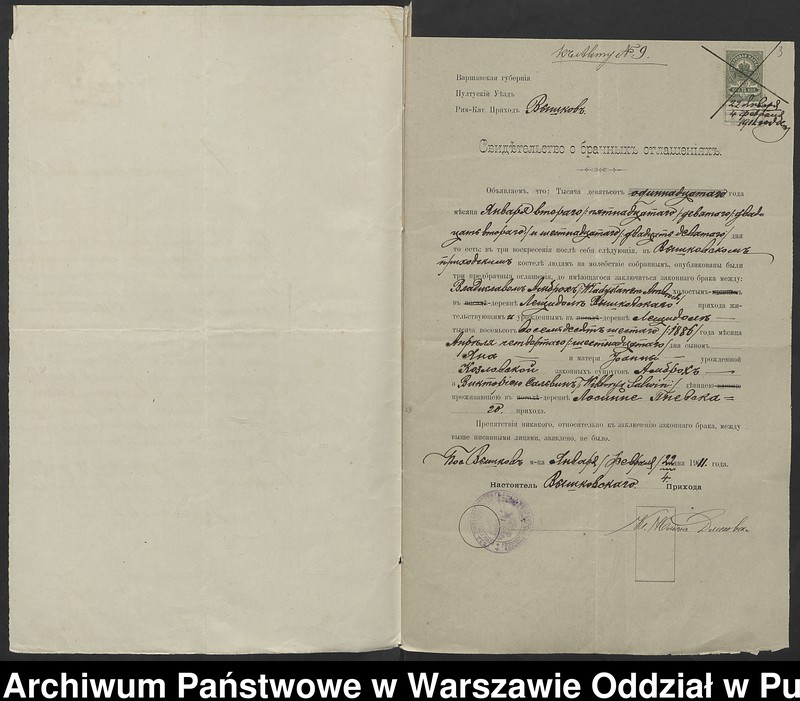 къ Акту № 9.
3
Варшавская губернія
Пултускій Уѣздъ
Рим-Кат. Приходъ Вышковъ.
22 Января
4 февраля
Свидѣтельство о брачныхъ оглашеніяхъ.
Объявляемъ, что: Тысяча девятьсотъ одиннадцатаго года
мѣсяца Января втораго / пятнадцатаго / девятаго / двад-
цать втораго / и шестнадцатаго / двадцать девятаго / дня
то есть: въ три воскресенія послѣ себя слѣдующія, въ Вышковскомъ
приходскомъ костелѣ людямъ на молебствіе собраннымъ, опубликованы были
три предбрачныя оглашенія, до имѣющагося заключиться законнаго брака между:
Владиславомъ Амброхъ / Władysław Ambroch / холостымъ
въ посадѣ-деревнѣ Лещидолъ Вышковскаго прихода жи-
тельствующимъ и урожденнымъ въ посадѣ-деревнѣ Лещидолъ
тысяча восемьсотъ восемьдесятъ шестаго / 1886 / года мѣсяца
Апрѣля четвертаго / шестнадцатаго / дня сыномъ
Яна и матери Іоанны урожденной
Козловской законныхъ супруговъ Амброхъ
а Викторіею Салвинъ / Wiktorya Salwin / дѣвицею
проживающею въ посадѣ-деревнѣ Лосинне
28. прихода.
Препятствія никакого, относительно къ заключенію законнаго брака, между
выше писанными лицами, заявлено, не было.
Пос. Вышковъ м-ца Января / февраля / 22/4 дня 1911. года.
Настоятель Вышковскаго Прихода
Archiwum Państwowe w Warszawie Oddział w Pu